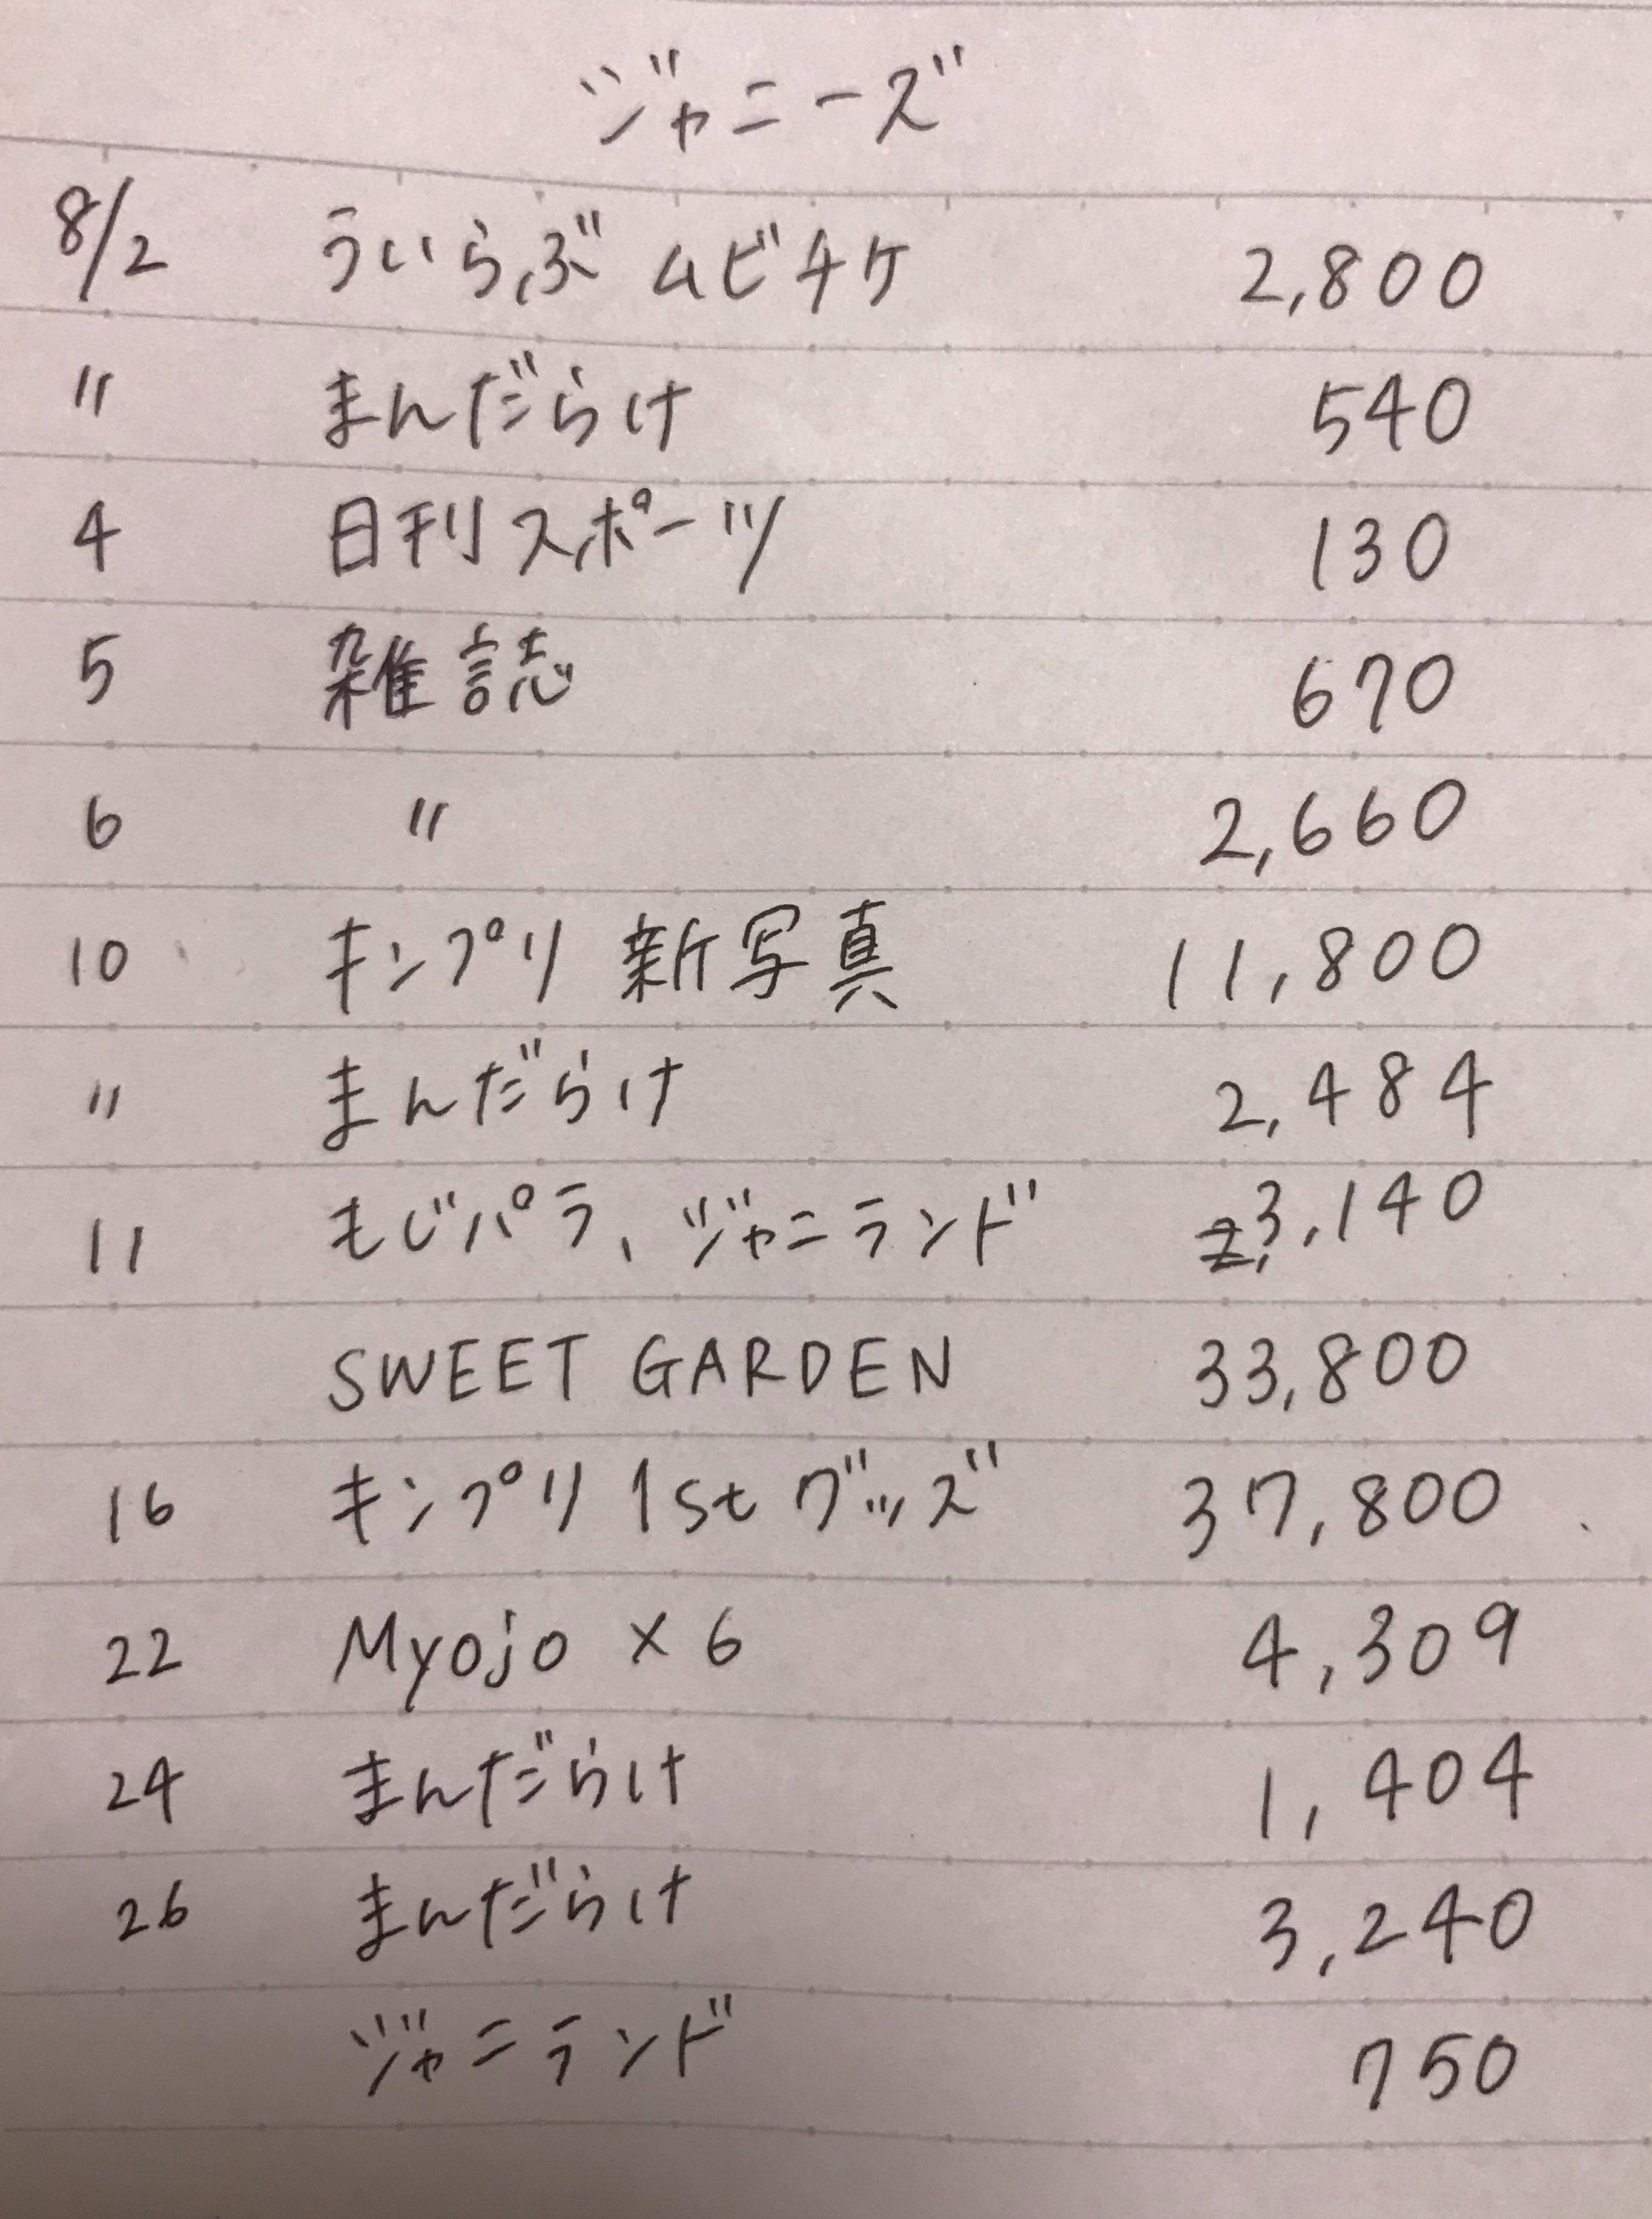 ジャニーズ
8/2 ういらぶ ムビチケ 2,800
〃 まんだらけ 540
4 日刊スポーツ 130
5 雑誌 670
6 〃 2,660
10 キンプリ 新写真 11,800
〃 まんだらけ 2,484
11 もじパラ、ジャニランド 3,140
SWEET GARDEN 33,800
16 キンプリ 1st グッズ 37,800
22 Myojo × 6 4,309
24 まんだらけ 1,404
26 まんだらけ 3,240
ジャニランド 750